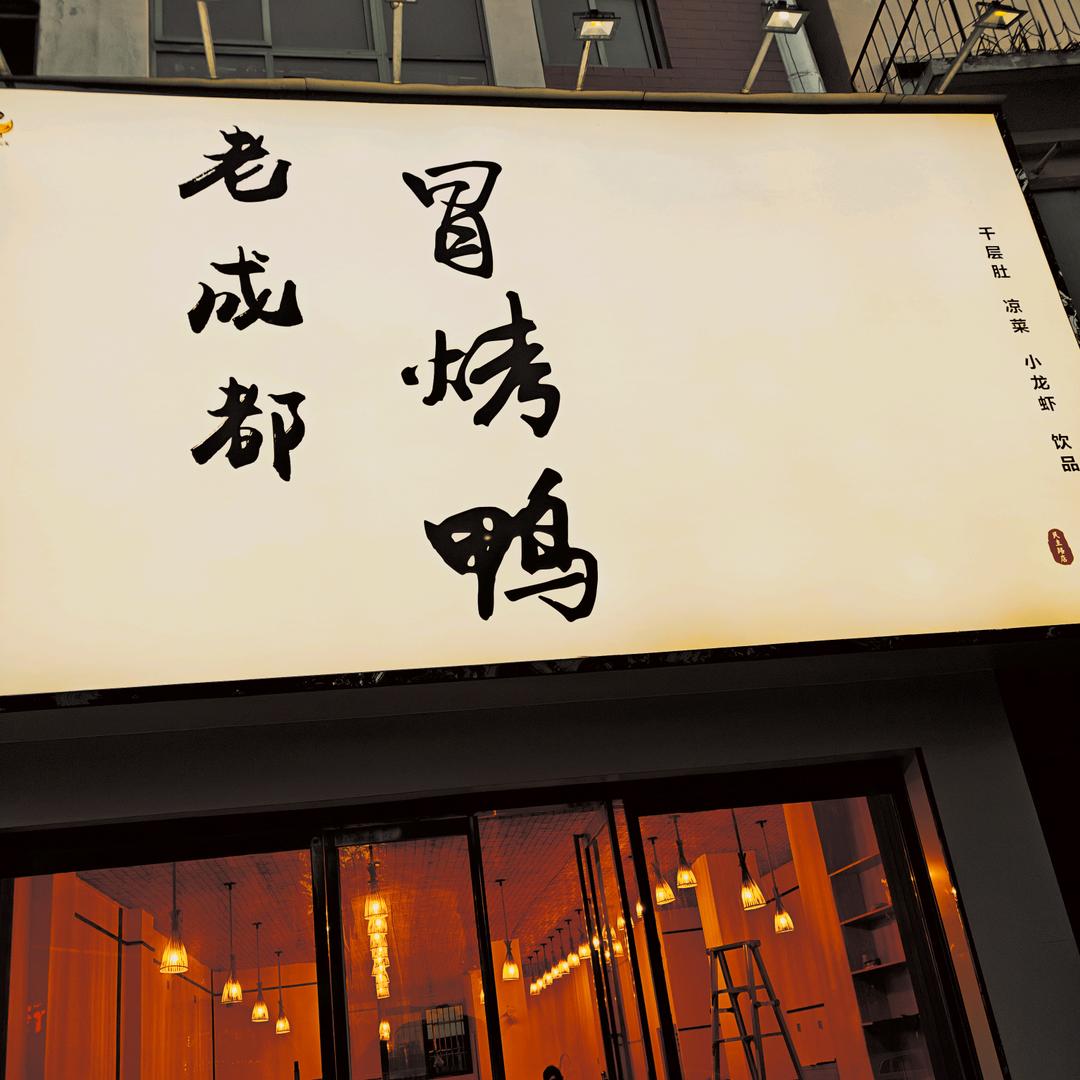 老成都
冒烤鸭
千层肚 凉菜 小龙虾 饮品
民主路店